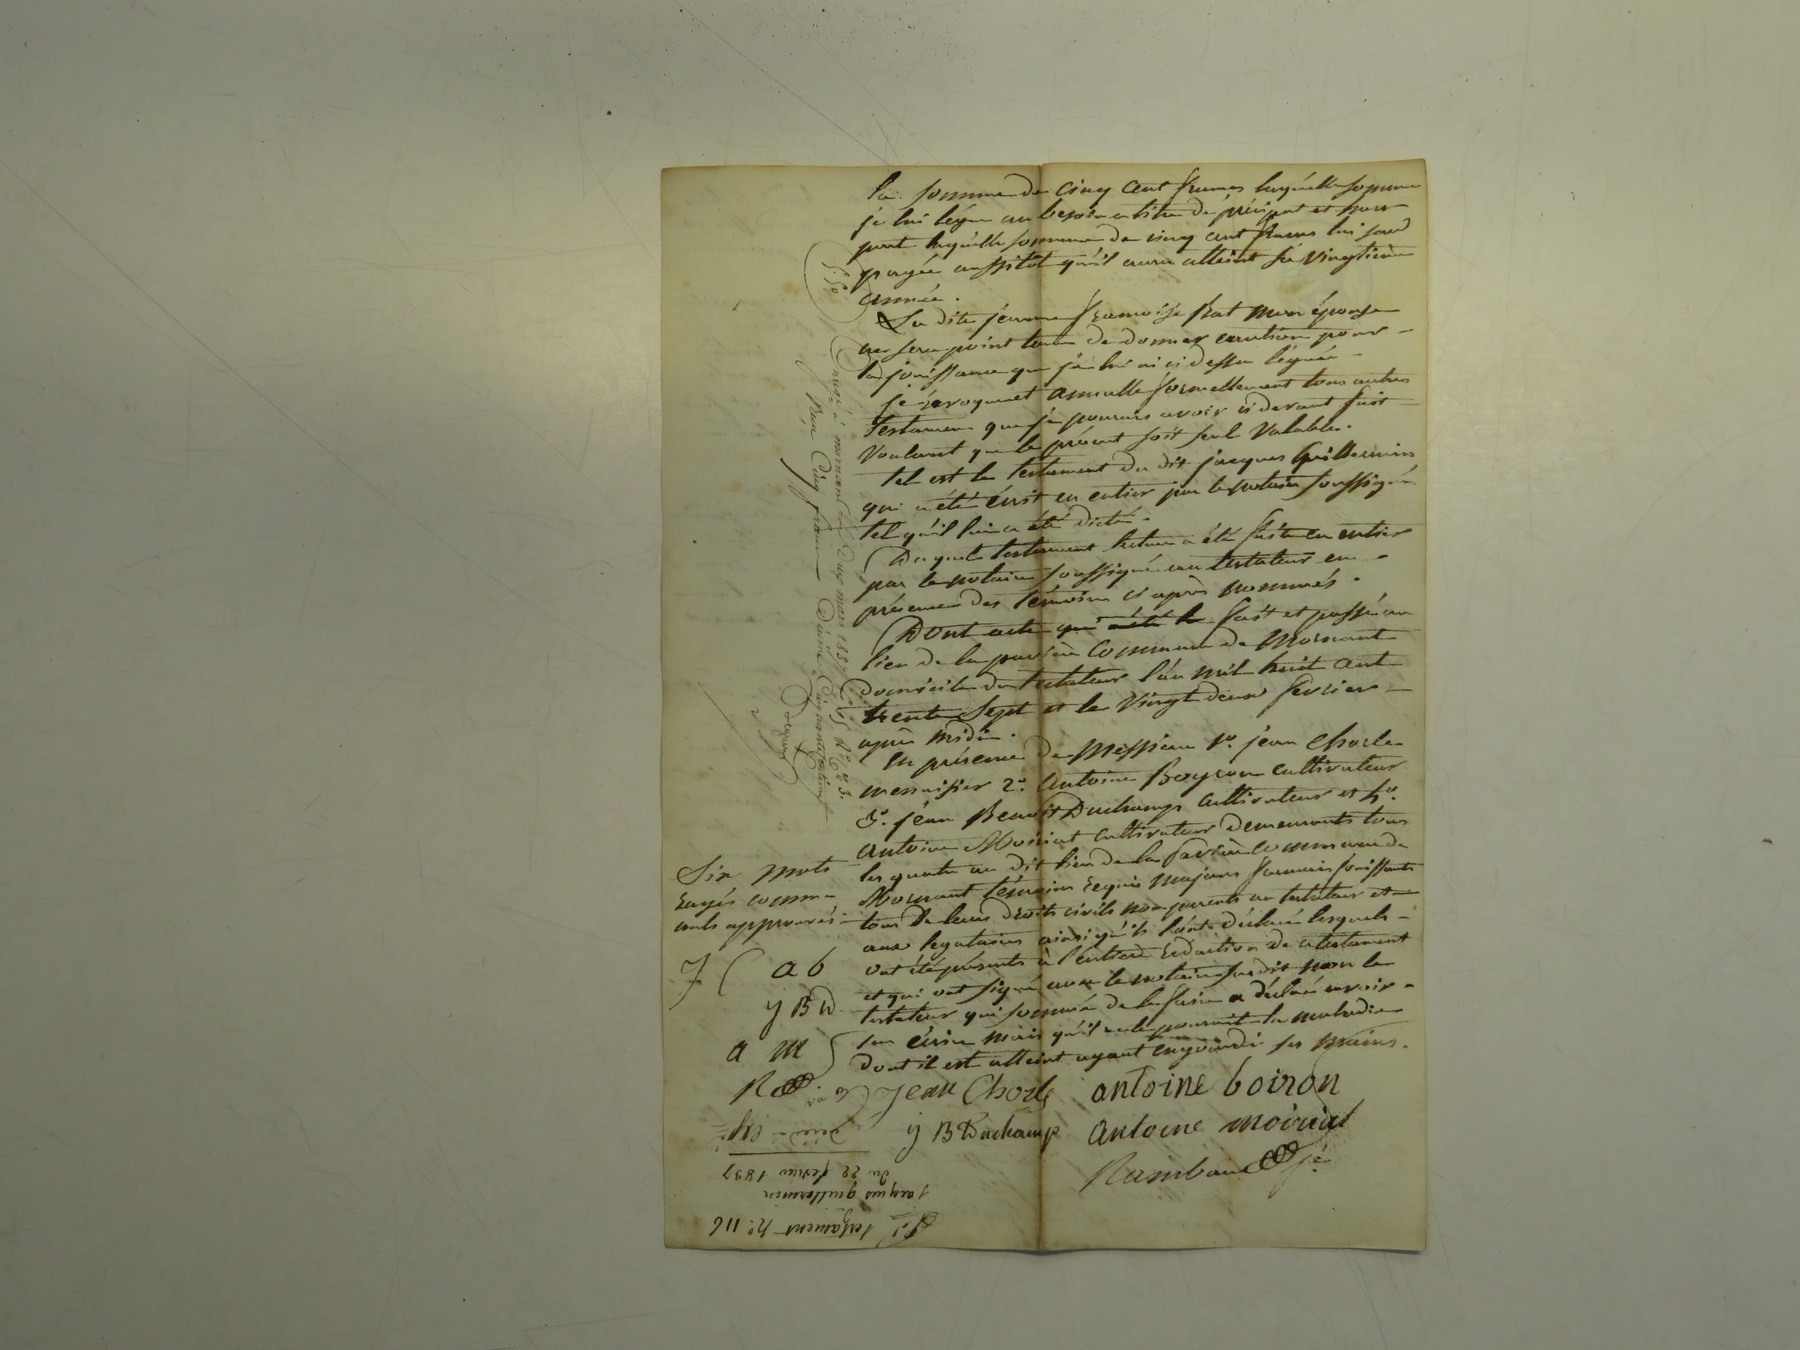 la somme de cinq cent francs laquelle somme
je lui lègue au besoin a titre de préciput et hors
part laquelle somme de cinq cent francs lui sera
payée aussitôt qu'il aura atteint sa vingtième
année.
La dite jeanne françoise fiat mon épouse
ne sera point tenue de donner caution pour
la jouissance que je lui ai ci dessus léguée
je révoque et annulle formellement tous autres
testamens que je pourrais avoir ci devant fait
voulant que le présent soit seul valable.
tel est le testament du dit jacques Guillermin
qui a été écrit en entier par le notaire soussigné
tel qu'il lui a été dicté.
Duquel testament lecture a été faite en entier
par le notaire soussigné au testateur en
présence des témoins ci après nommés.
Dont acte qui a été fait et passé au
lieu de la commune de Mornant
domicile du testateur l'an mil huit cent
trente sept et le vingt deux février
après midi.
En présence de Messieurs 1o. jean Chorle
menuisier 2o. Antoine Boyron cultivateur
3o. jéan Benoit Duchamp cultivateur et 4o.
Antoine Moiriat cultivateur demeurants tous
les quatre au dit lieu de la commune de
Mornant témoins requis majeurs francais jouissants
tous de leurs droits civils non parents au testateur et
aux legataires ainsi qu'ils l'ont déclaré lesquels
ont été présents à l'entière rédaction de ce testament
et qui ont signé avec le notaire susdit non le
testateur qui sommé de le faire a déclaré savoir
écrire mais qu'il ne le pouvait la maladie
dont il est atteint ayant engourdi ses mains.
Jean Chorle antoine boiron
j B Duchamp antoine moiriat
Rambaud
Six mots
rayés comme
nuls approuvés
J C a b
j B D
a m
R
Enregé à mornant le deux mars 1837
Reçu Cinq francs décime Cinquante centimes
testament no. 116
jacques guillermin
du 22 fevrier 1837